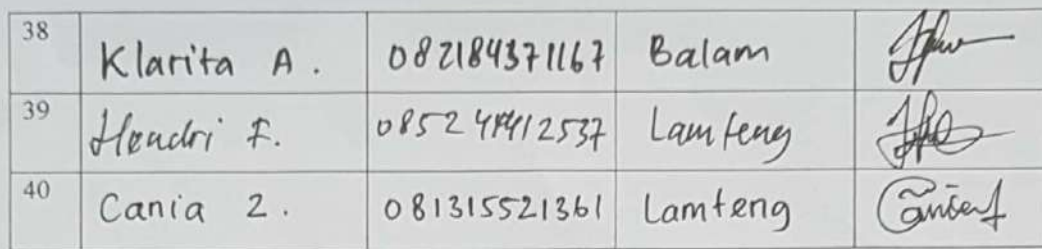 38 Klarita A. 082184371167 Balam
39 Hendri F. 085241412537 Lamteng
40 Cania Z. 081315521361 Lamteng